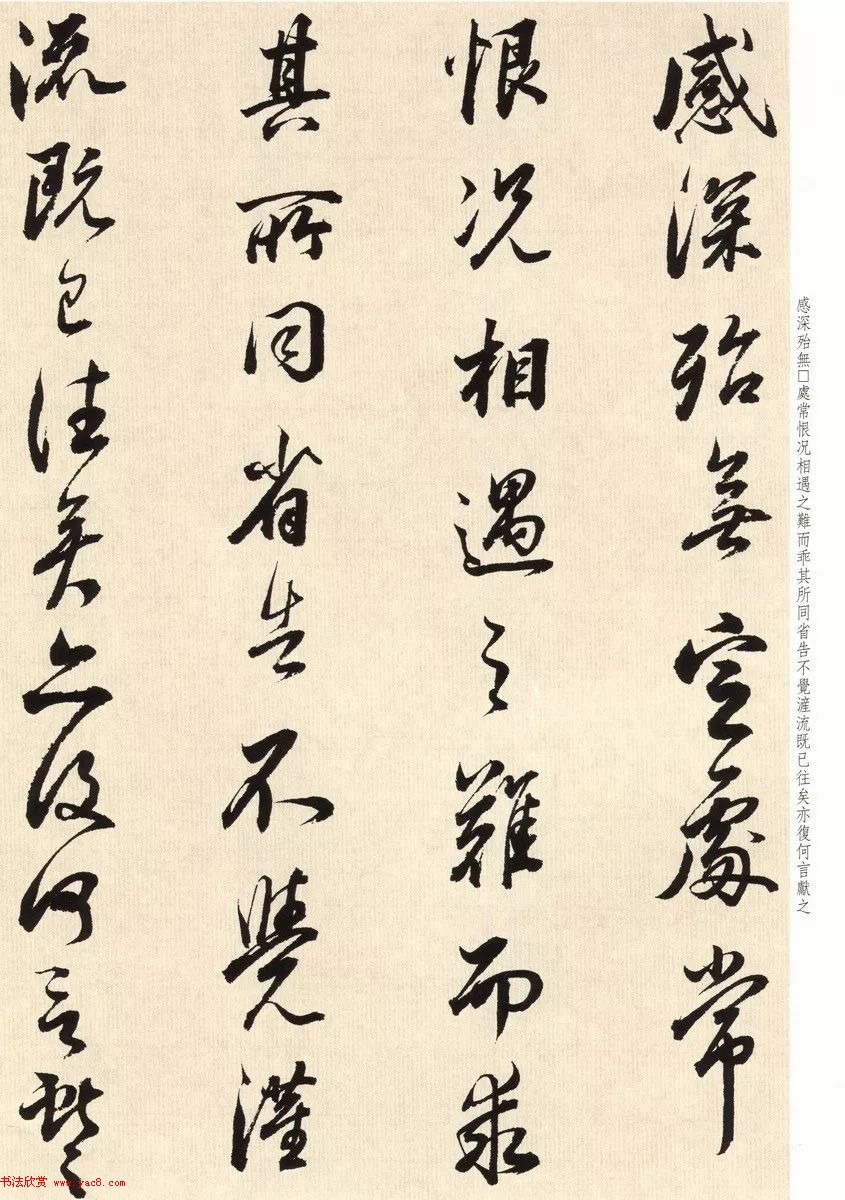 感深殆無□處常恨况相遇之難而乖其所同省告不覺滻流既已往矣亦復何言獻之
感深殆無空處常
恨况相遇之難而乖
其所同省告不覺滻
流既已往矣亦復何言獻之
书法欣赏 www.yac8.com